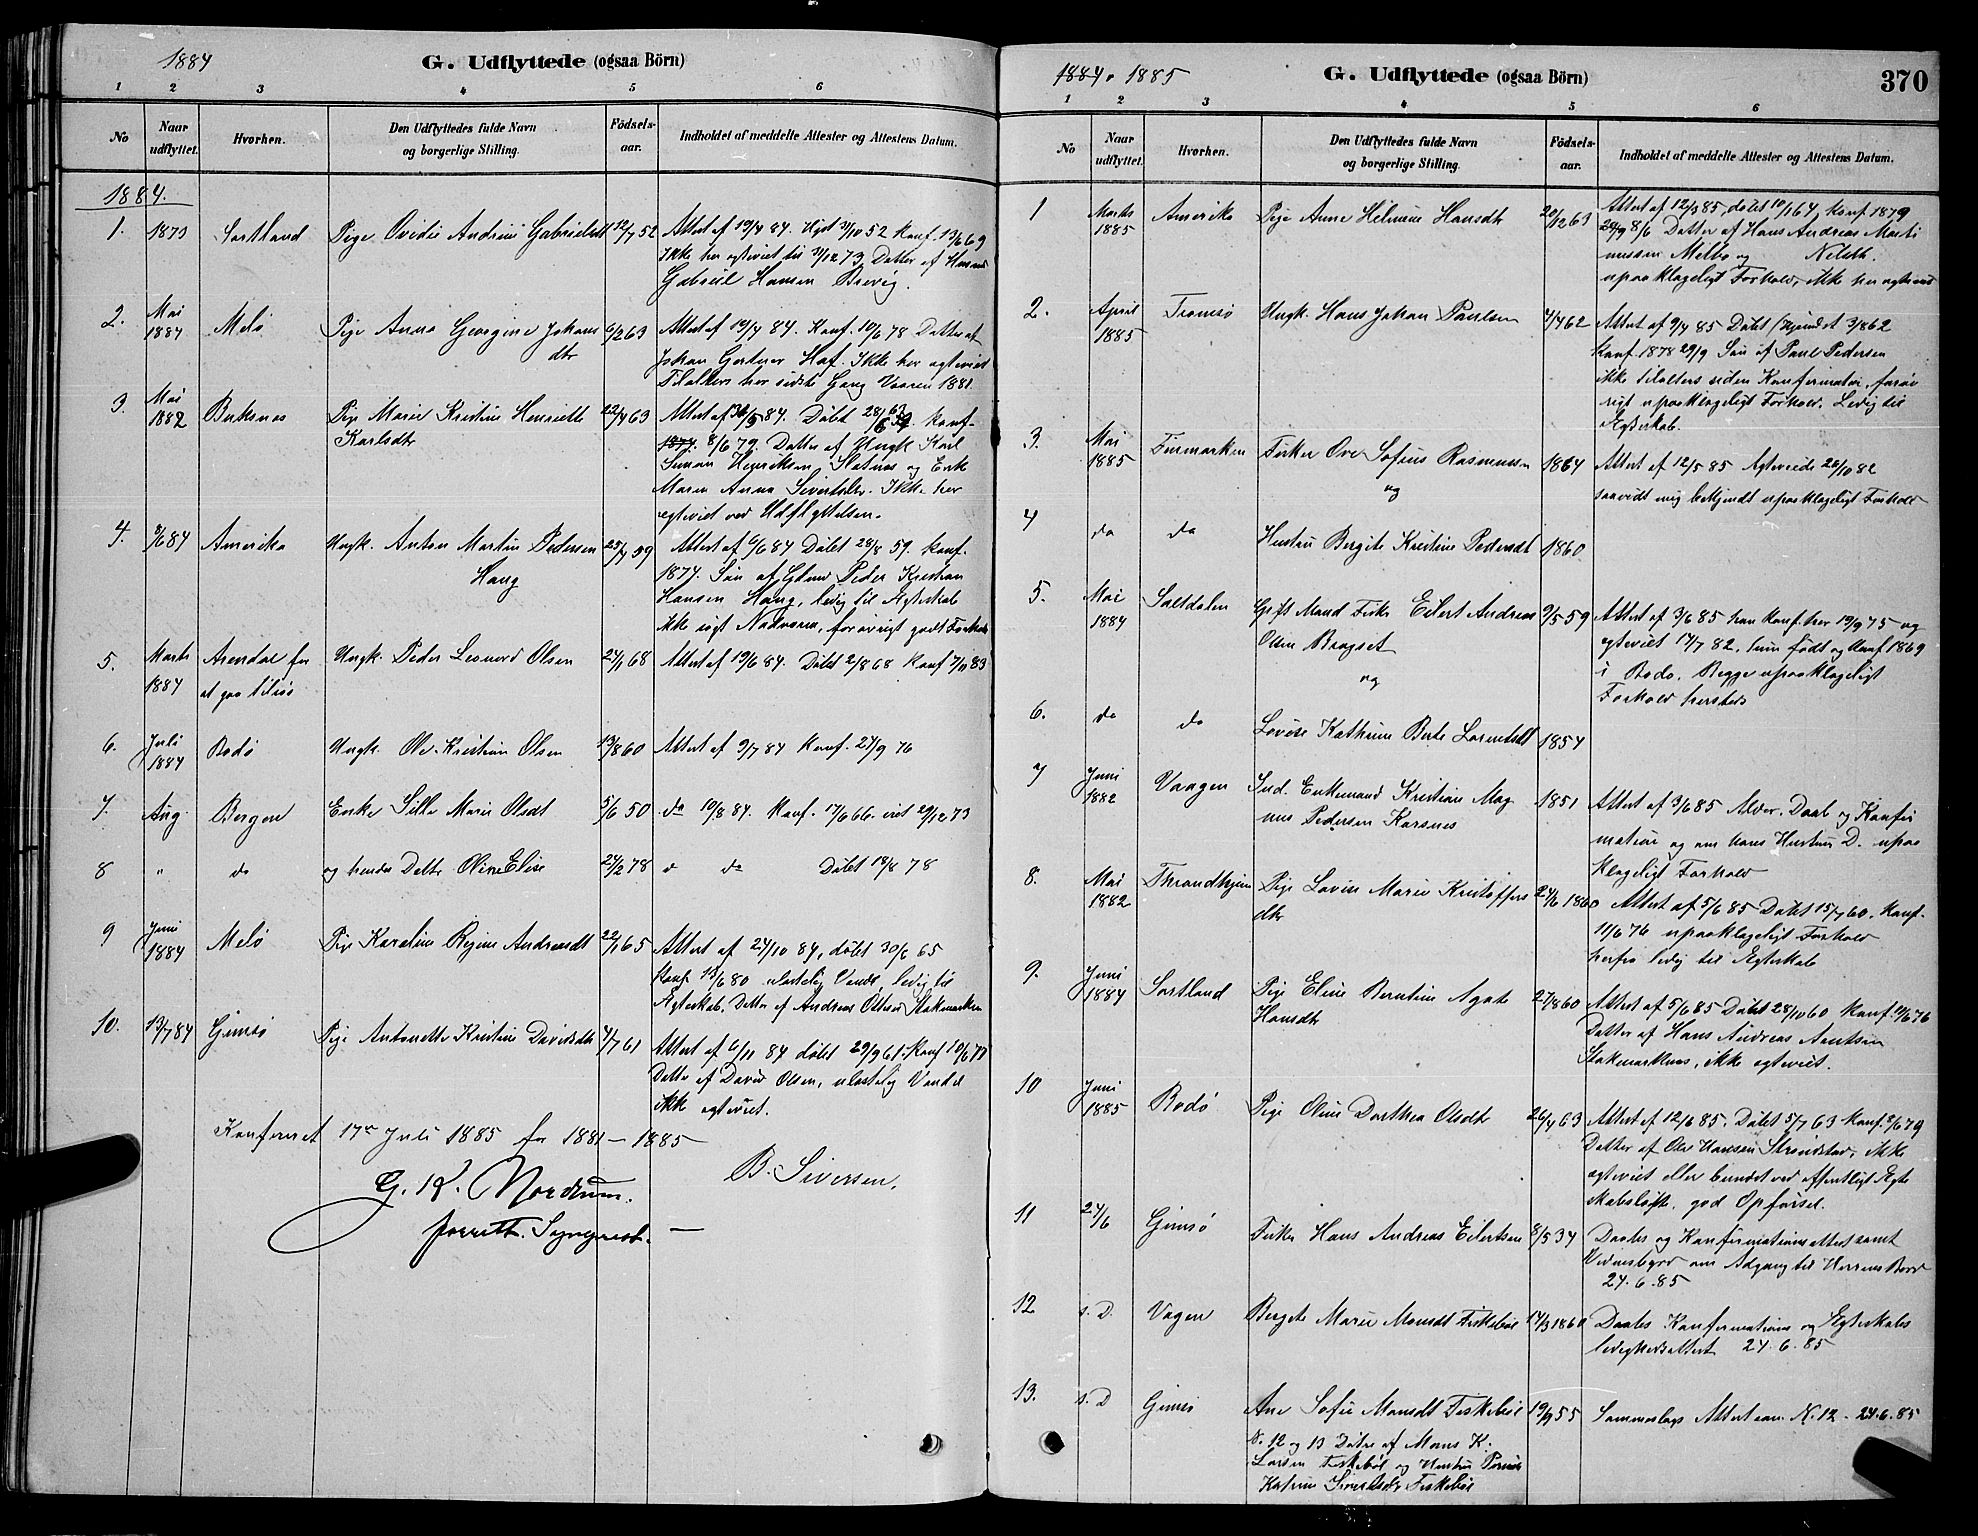 1884
G. Udflyttede (ogsaa Börn)
1 2 3 4 5 6
No
Naar udflyttet.
Hvorhen.
Den Udflyttedes fulde Navn
og borgerlige Stilling.
Födsels-
aar.
Indholdet af meddelte Attester og Attestens Datum.
1884.
1. 1873 Sortland Pige Ovidie Andrine Gabrielsdt 12/7 52 Attest af 19/4 84. Hjdt 3/10 52 Konf. 13/6 69
Ikke her egteviet til 31/12 73 Datter af
Gabriel Hansen Brevig.
2. Mai
1884 Melø Pige Anna Georgine Johans 6/2 63 Attest af 19/4 84. Konf. 10/6 78 Datter af
dtr Johan Gertner Haf. Ikke her egteviet
Tilalters her sidste Gang Vaaren 1881.
3. Mai
1882 Buksnes Pige Marie Kristine Henriette 22/4 63 Attest af 30/5 84. Døbt 28/6 63. Konf.
Karlsdtr 1877. 8/6 79. Datter af Ungk Karl
Simon Henriksen Slatnes og Enke
Maren Anna Sivertsdtr. Ikke her
egteviet ved Udflyttelsen.
4. 7/6 84 Amerika Ungk. Anton Martin Pedersen 25/7 59 Attest af 6/6 84 Døbt 28/8 59. Konf.
Haug 1874. Søn af Peder Kristian
Hansen Haug, ledig til Egteskab
ikke søgt Nadveren, forøvrigt godt Forhold
5. Marts
1884 Arendal for
at gaa tilsøs Ungk. Peder Leonard Olsen 24/1 68 Attest af 19/6 84. Døbt 2/8 68 Konf 7/10 83
6. Juli
1884 Bodø Ungk. Ole Kristian Olsen 13/8 60 Attest af 9/7 84 Konf. 24/9 76
7. Aug. Bergen Enke Sille Marie Olsdt 5/6 50 do 10/8 84. Konf. 17/6 66. viet 29/12 73
8 " do og hendes Datter Oline Elise 24/2 78 d do Døbt 18/8 78
9 Juni
1884 Melø Pige Karoline Regine Andreasdt 22/1 65 Attest af 24/10 84, døbt 30/6 65
Konf. 13/6 80 ulastelig Vandel, ledig til
Egteskab. Datter af Andreas Ottesen Stokmarknes
10. 13/7 84 Gimsø Pige Antonette Kristine Davidsdt 4/7 61 Attest af 6/11 84 døbt 29/9 61. Konf 10/6 77
Datter af David Olsen, ulastelig Vandel
ikke egteviet.
Konfereret 17de Juli 1885 for 1881 – 1885
G. K. Nordrum. B. Siversen.
1884. 1885
G. Udflyttede (ogsaa Börn) 370
1 2 3 4 5 6
No
Naar
udflyttet.
Hvorhen.
Den Udflyttedes fulde Navn
og borgerlige Stilling.
Födsels-
aar.
Indholdet af meddelte Attester og Attestens Datum.
1 Marts
1885 Amerika Pige Anne Helmine Hansdt 20/12 63 Attest af 12/3 85, døbt 10/1 64, Konf. 1879
8/6 Datter af Hans Andreas Marti
nussen Melbo og Nilsdt.
upaaklageligt Forhold, ikke her egteviet
2. April
1885 Tromsø Ungk. Hans Johan Paulsen 4/4 62 Attest af 9/4 85 Døbt (Hjemdøbt 3/8 62
Konf. 1878 29/9 Søn af Paul Pedersen
ikke tilalters siden Konfirmation, forøv
rigt upaaklageligt Forhold. Ledig til
Egteskab.
3. Mai
1885 Finmarken Fisker Ove Sofius Rasmussen 1864 Attest af 12/5 85 Egteviede 26/10 82
og saavidt mig bekjendt upaaklageligt Forhold
4 do do Hustru Bergite Kristine Pedersdt 1860
5. Mai
1884 Saltdalen Gift Mand Fisker Eilert Andreas 9/5 59 Attest af 3/6 85 han Konf. her 19/9 75 og
Olsen Brogset egteviet 14/7 82, hun født og Konf 1869
og i Bodø. Begge upaaklageligt
Forhold hersteds
6. do do Lovise Kathrine Berte Lorentsdt 1854
7 Juni
1882 Vaagen Ind. Enkemand Kristian Mag 1851 Attest af 3/6 85 Alder, Daab og Konfir
nus Pedersen Korsnes mation og om hans Hustrus D. upaa
klageligt Forhold
8. Mai
1882 Throndhjem Pige Lovise Marie Kristoffers 24/6 1860 Attest af 5/6 85 Døbt 15/7 60. Konf.
dtr 11/6 76 upaaklageligt Forhold
herfra ledig til Egteskab
9. Juni
1884 Sortland Pige Eline Berntine Agate 27/8 60 Attest af 5/6 85 Døbt 28/10 60 Konf. 11/6 76
Hansdtr Datter af Hans Andreas Arntsen
Stokmarknes, ikke egteviet.
10 Juni
1885 Bodø Pige Oline Dorthea Olsdtr 26/4 63 Attest af 12/6 85. Døbt 5/7 63 Konf. 8/6 79
Datter af Ole Hansen Strindstad, ikke
egteviet eller bundet ved offentligt Egte
skabsløfte, god Opførsel.
11 24/6 Gimsø Fisker Hans Andreas Eilertsen 8/5 34 Daabs og Konfirmationsattest samt
Vidnesbyrd om Adgang til Herrens Bord
24.6.85
12 s. D. Vagen Bergete Marie Monsdt Fiskebøl 14/3 1860 Daabs Konfirmations og Egteskabs
ledighedsattest 24.6.85
13. s. D Gimsø Ane Sofie Monsdt Fiskebøl 19/9 55 Sammeslags Attest som N. 12 – 24.6.85
N. 12 og 13 Døtre af Mons K.
Larsen Fiskebøl og Hustru
Katrine Sivertsdtr Fiskebøl